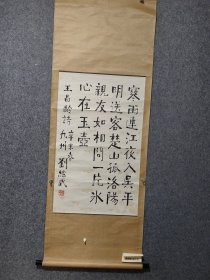 寒雨連江夜入吳平
明送客楚山孤洛陽
親友如相問一片冰
心在玉壺
王昌齡詩
九州 劉